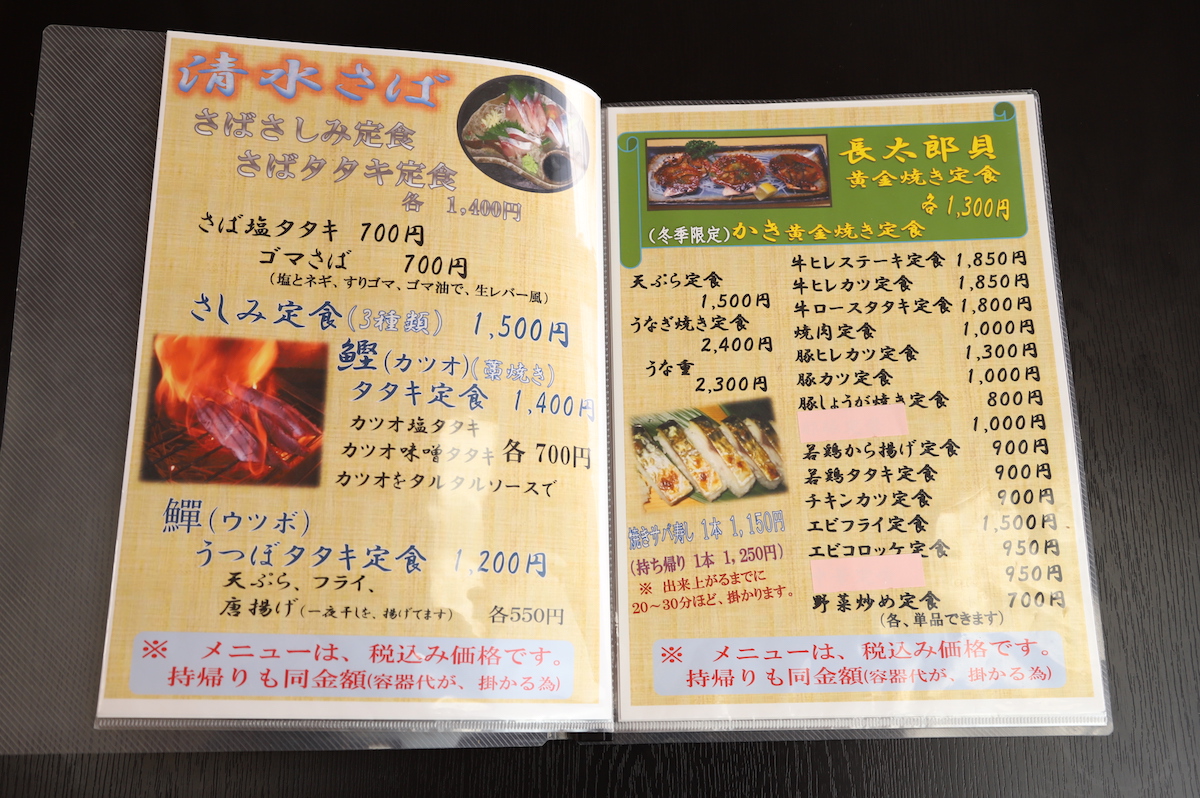 清水さば
さばさしみ定食
さばタタキ定食
各 1,400円
さば塩タタキ 700円
ゴマさば 700円
(塩とネギ、すりゴマ、ゴマ油で、生レバー風)
さしみ定食(3種類) 1,500円
鰹(カツオ)(藁焼き)
タタキ定食 1,400円
カツオ塩タタキ
カツオ味噌タタキ 各700円
カツオをタルタルソースで
鱓(ウツボ)
うつぼタタキ定食 1,200円
天ぷら、フライ、
唐揚げ(一夜干しを、揚げてます) 各550円
※ メニューは、税込み価格です。
持帰りも同金額(容器代が、掛かる為)
長太郎貝
黄金焼き定食
各1,300円
(冬季限定)かき黄金焼き定食
天ぷら定食
1,500円
うなぎ焼き定食
2,400円
うな重
2,300円
焼きサバ寿し 1本 1,150円
(持ち帰り 1本 1,250円)
※ 出来上がるまでに
20～30分ほど、掛かります。
牛ヒレステーキ定食 1,850円
牛ヒレカツ定食 1,850円
牛ロースタタキ定食 1,800円
焼肉定食 1,000円
豚ヒレカツ定食 1,300円
豚カツ定食 1,000円
豚しょうが焼き定食 800円
1,000円
若鶏から揚げ定食 900円
若鶏タタキ定食 900円
チキンカツ定食 900円
エビフライ定食 1,500円
エビコロッケ定食 950円
950円
野菜炒め定食 700円
(各、単品できます)
※ メニューは、税込み価格です。
持帰りも同金額(容器代が、掛かる為)